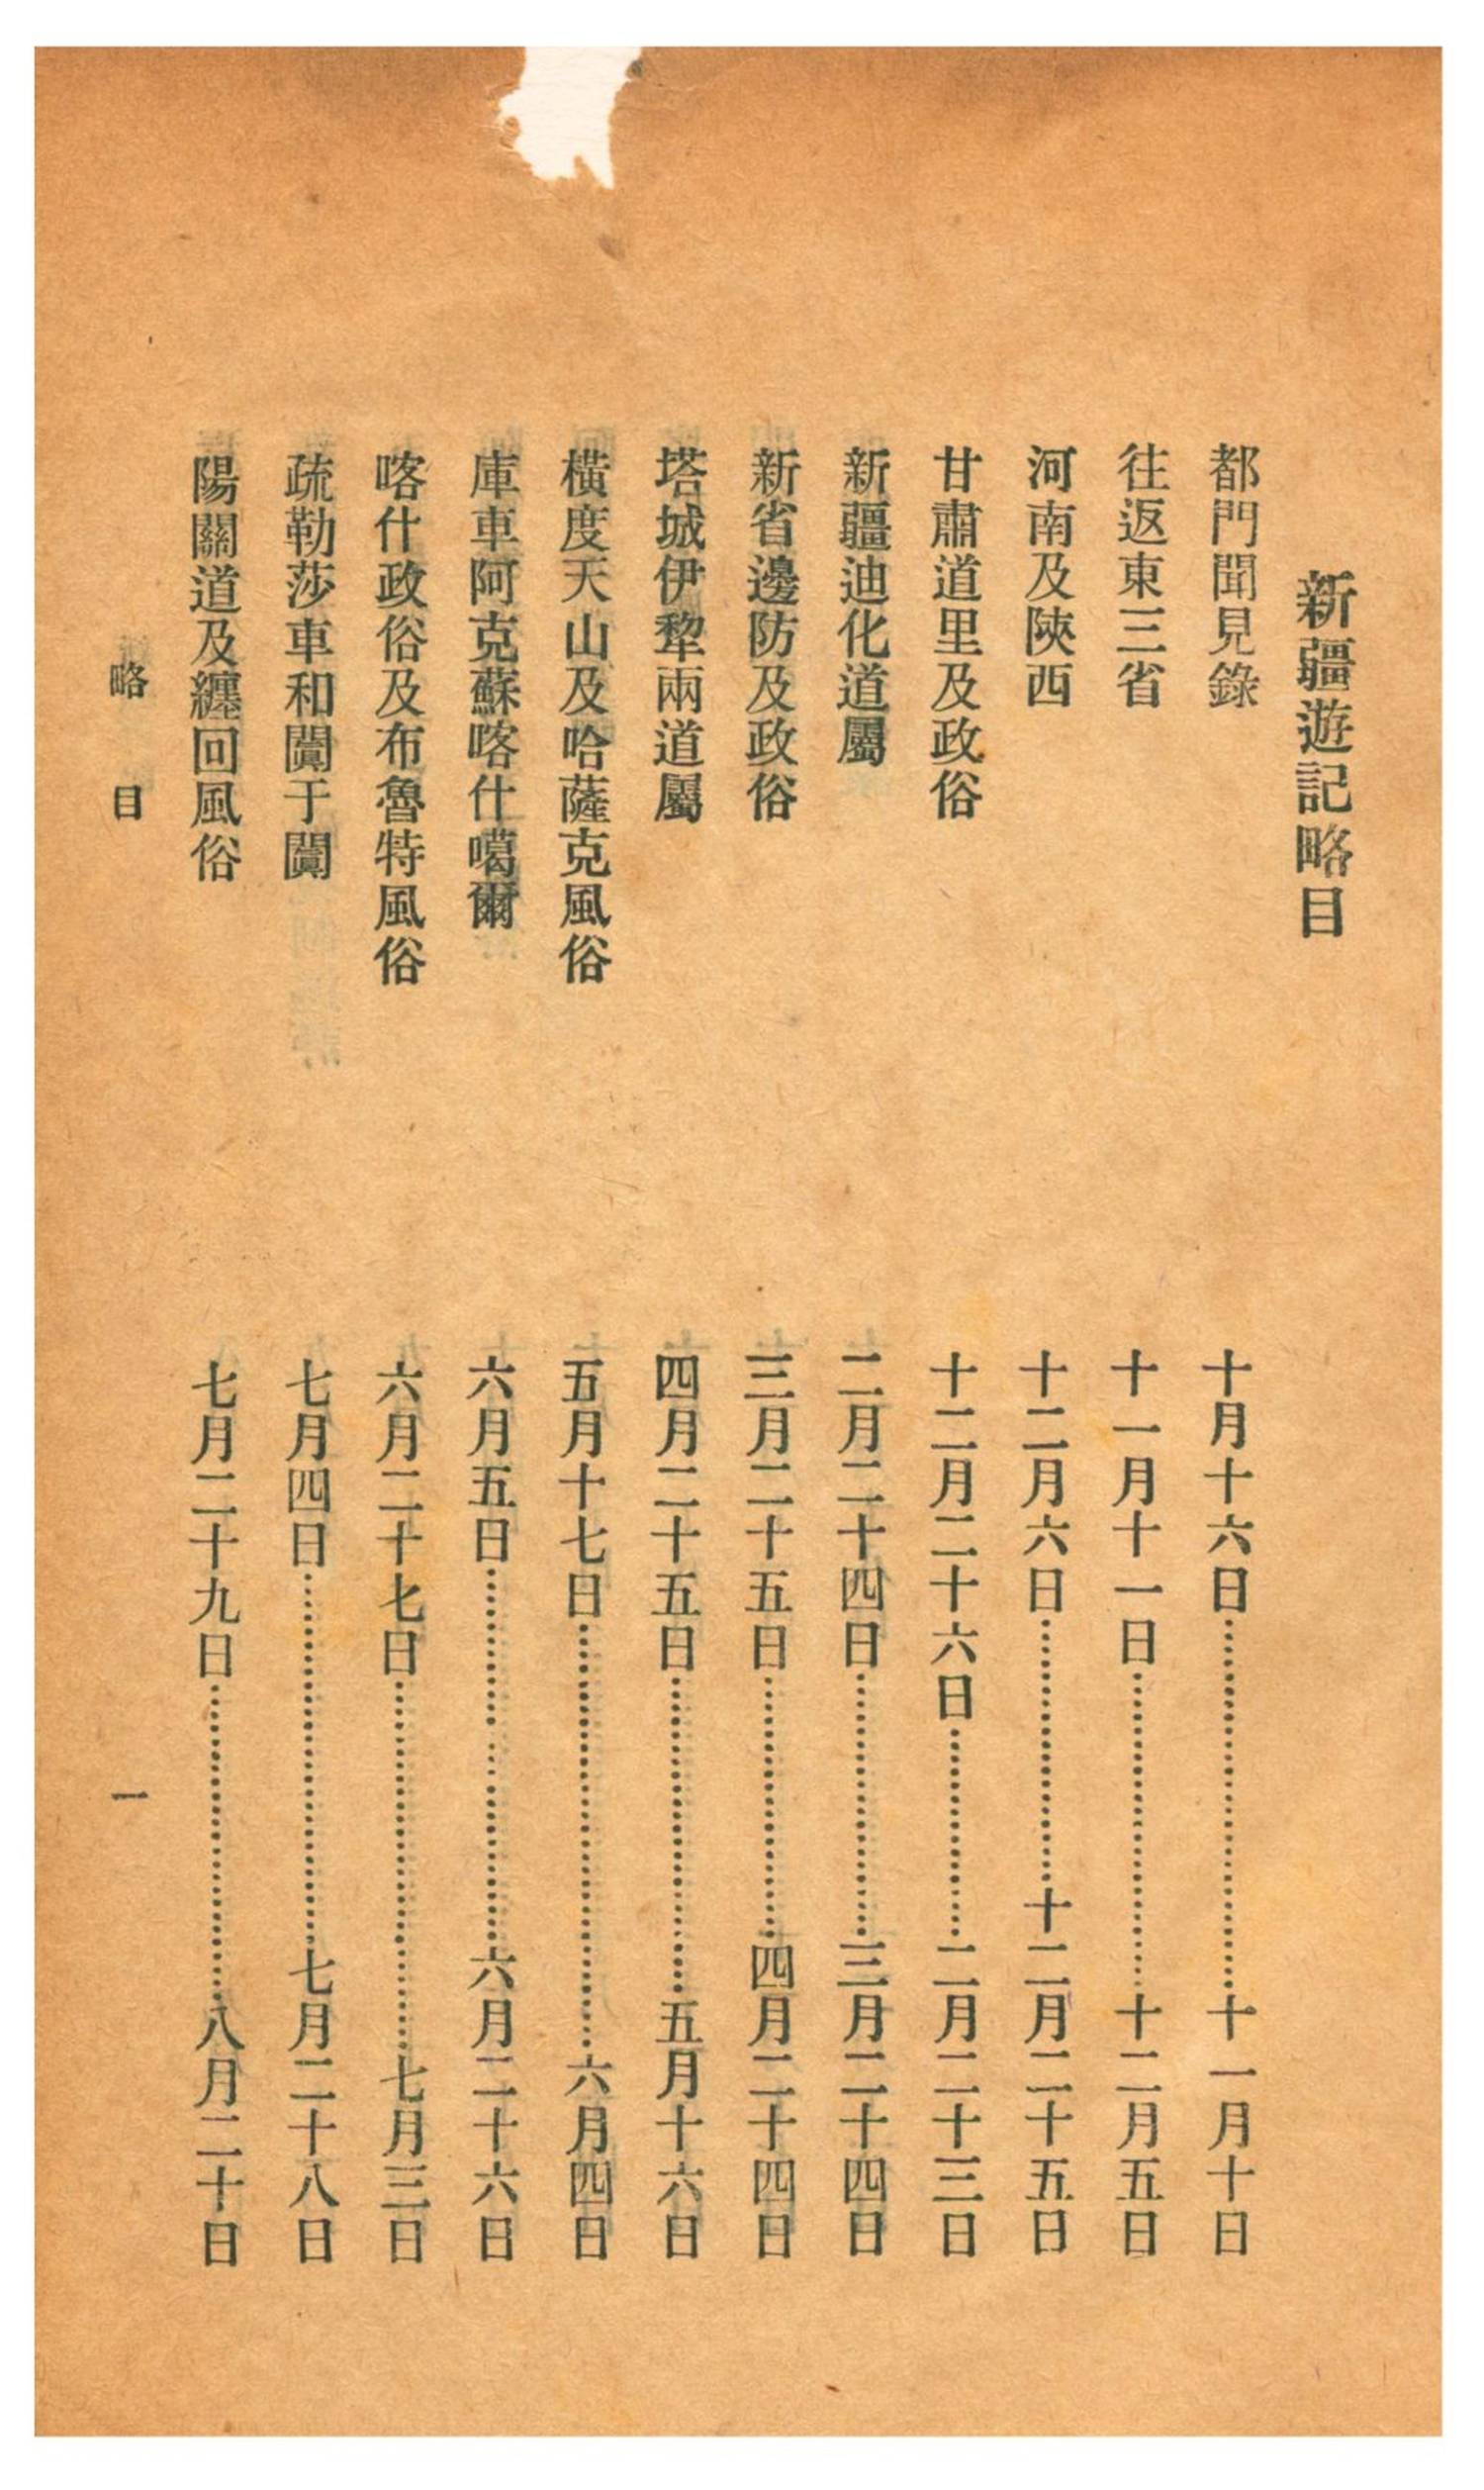 新疆遊記略目
都門聞見錄 十月十六日……十一月十日
往返東三省 十一月十一日……十二月五日
河南及陝西 十二月六日……十二月二十五日
甘肅道里及政俗 十二月二十六日……二月二十三日
新疆迪化道屬 二月二十四日……三月二十四日
新省邊防及政俗 三月二十五日……四月二十四日
塔城伊犂兩道屬 四月二十五日……五月十六日
橫度天山及哈薩克風俗 五月十七日……六月四日
庫車阿克蘇喀什噶爾 六月五日……六月二十六日
喀什政俗及布魯特風俗 六月二十七日……七月三日
疏勒莎車和闐于闐 七月四日……七月二十八日
陽關道及纏回風俗 七月二十九日……八月二十日
略目 一